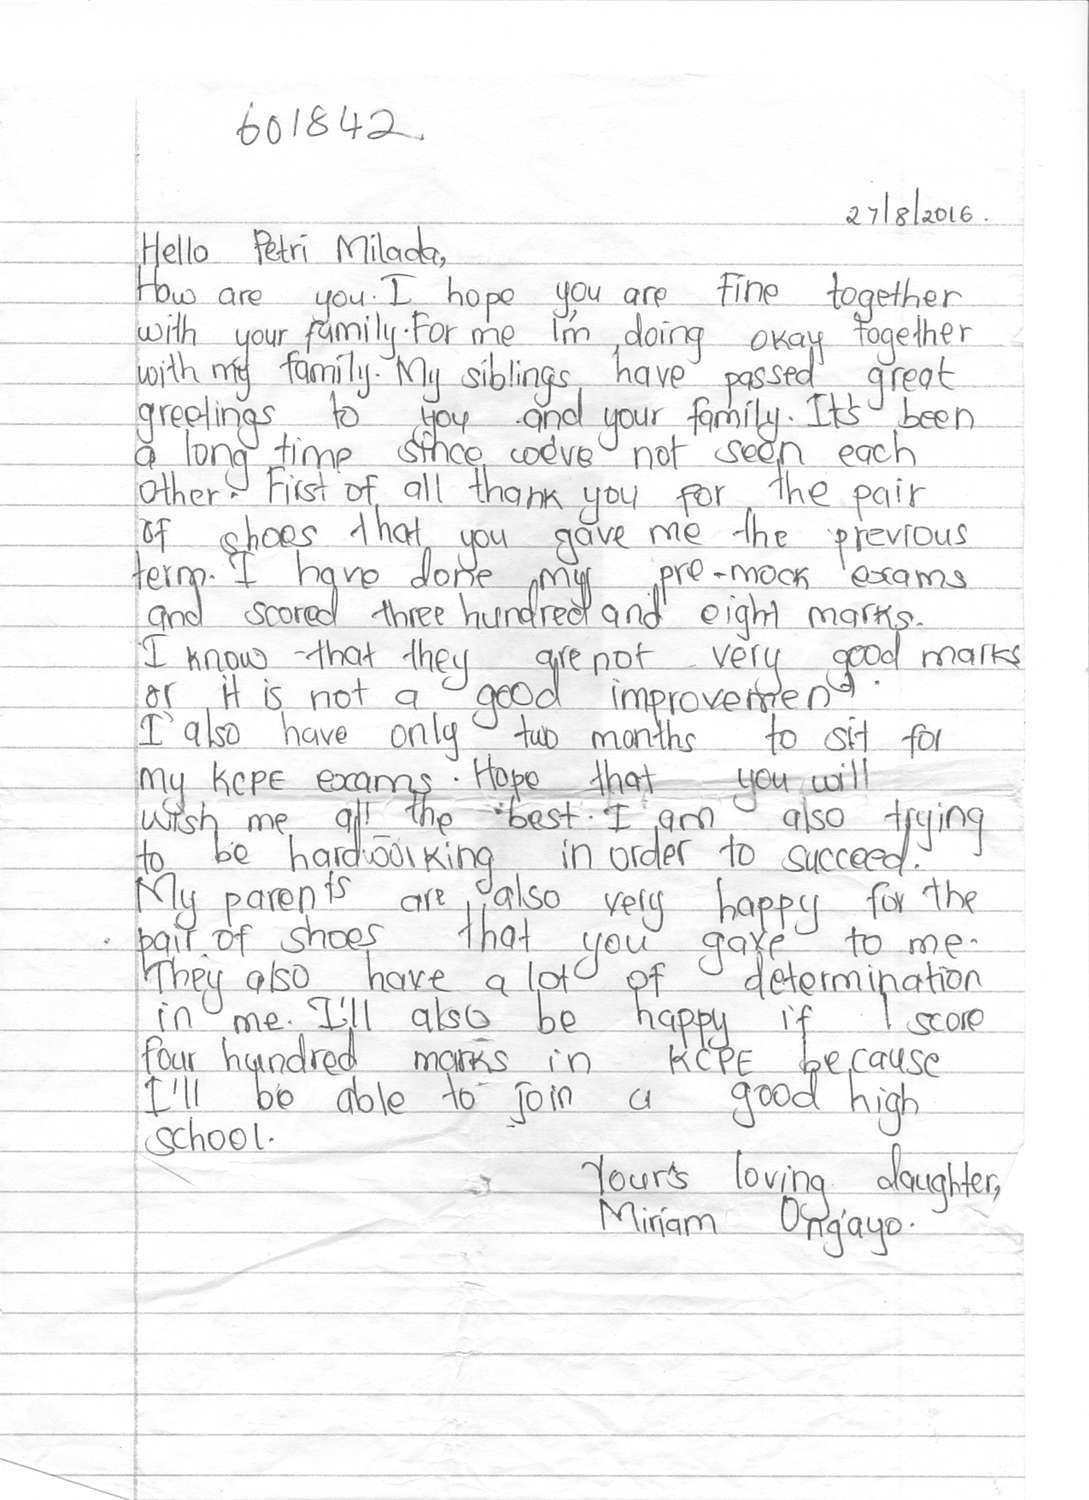 601842.
27/8/2016.
Hello Petri Milada,
How are you. I hope you are fine together
with your family. For me I'm doing okay together
with my family. My siblings have passed great
greetings to you and your family. It's been
a long time since we've not seen each
other. First of all thank you for the pair
of shoes that you gave me the previous
term. I have done my pre-mock exams
and scored three hundred and eight marks.
I know that they are not very good marks
or it is not a good improvement.
I also have only two months to sit for
my KCPE exams. Hope that you will
wish me all the best. I am also trying
to be hardworking in order to succeed.
My parents are also very happy for the
pair of shoes that you gave to me.
They also have a lot of determination
in me. I'll also be happy if I score
four hundred marks in KCPE because
I'll be able to join a good high
school.
Your's loving daughter,
Miriam Ong'ayo.